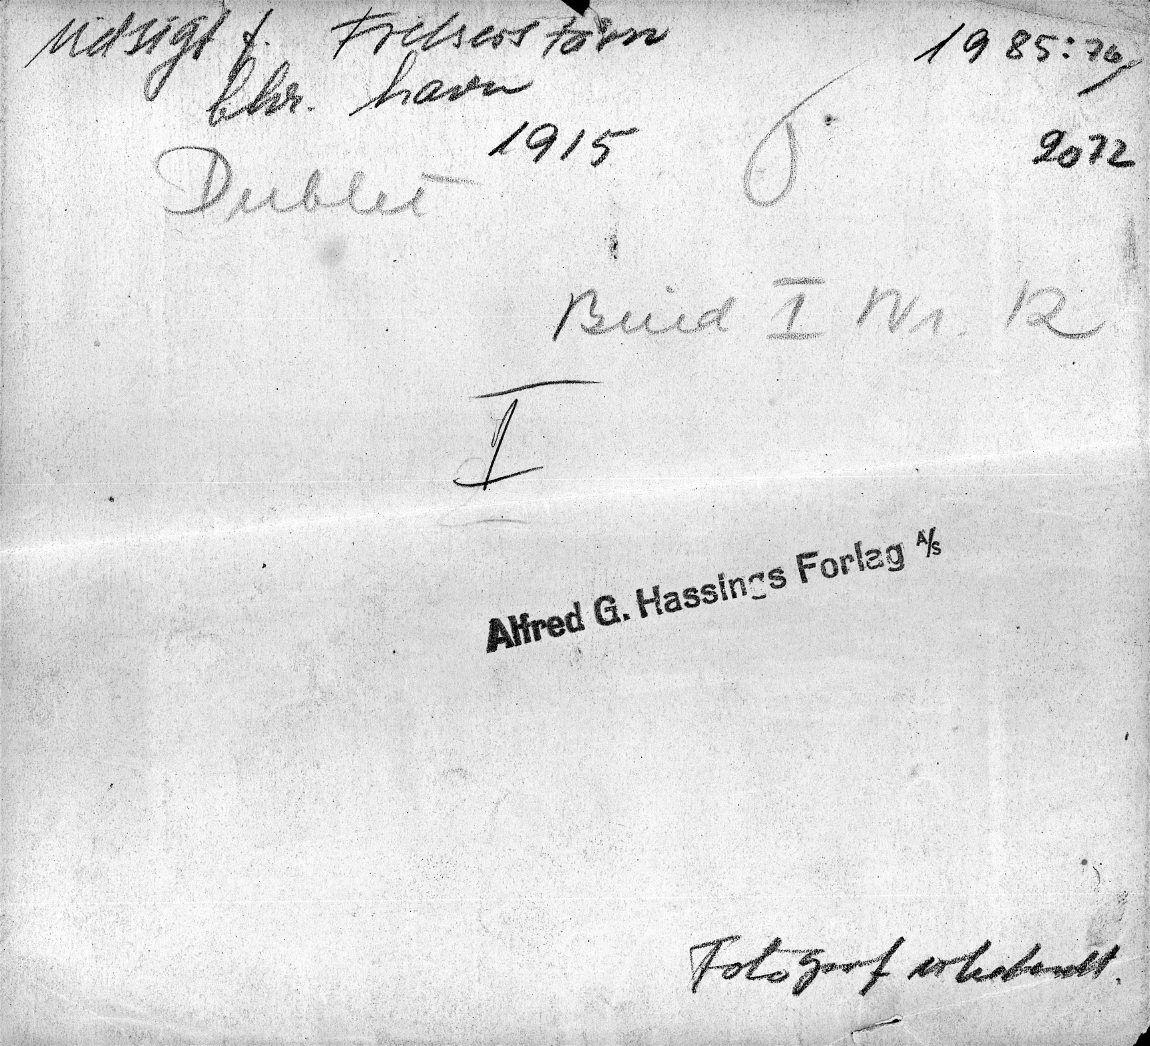 Udsigt f. Frelsers tårn
Chr. havn
1915
1985:76
2072
Dublet
Bind I Nr. 12
I
Alfred G. Hassings Forlag A/S
Fotograf ubekendt.